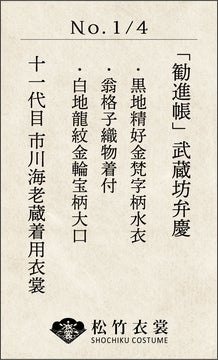 No.1/4
「勧進帳」武蔵坊弁慶
・黒地精好金梵字柄水衣
・翁格子織物着付
・白地龍紋金輪宝柄大口
十一代目 市川海老蔵着用衣裳
松竹衣裳
SHOCHIKU COSTUME